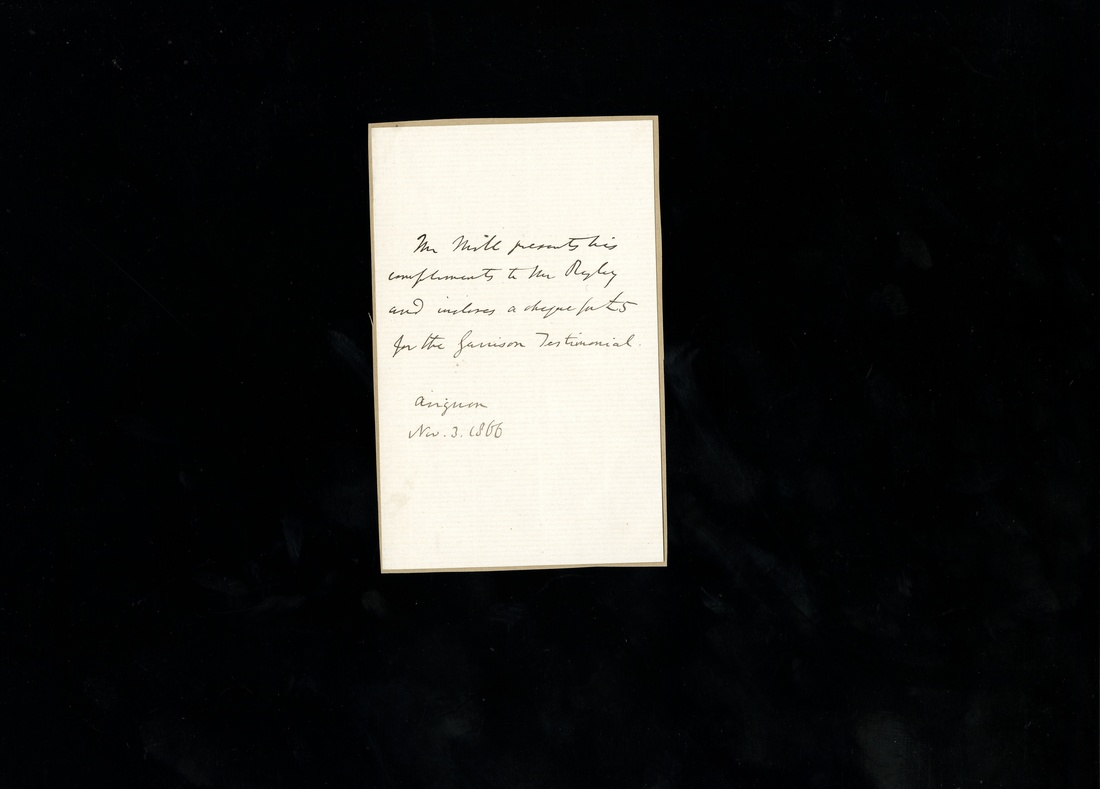 Mr Mill presents his
compliments to Mr Rigley
and incloses a cheque for £5
for the Garrison Testimonial.
Avignon
Nov. 3. 1866